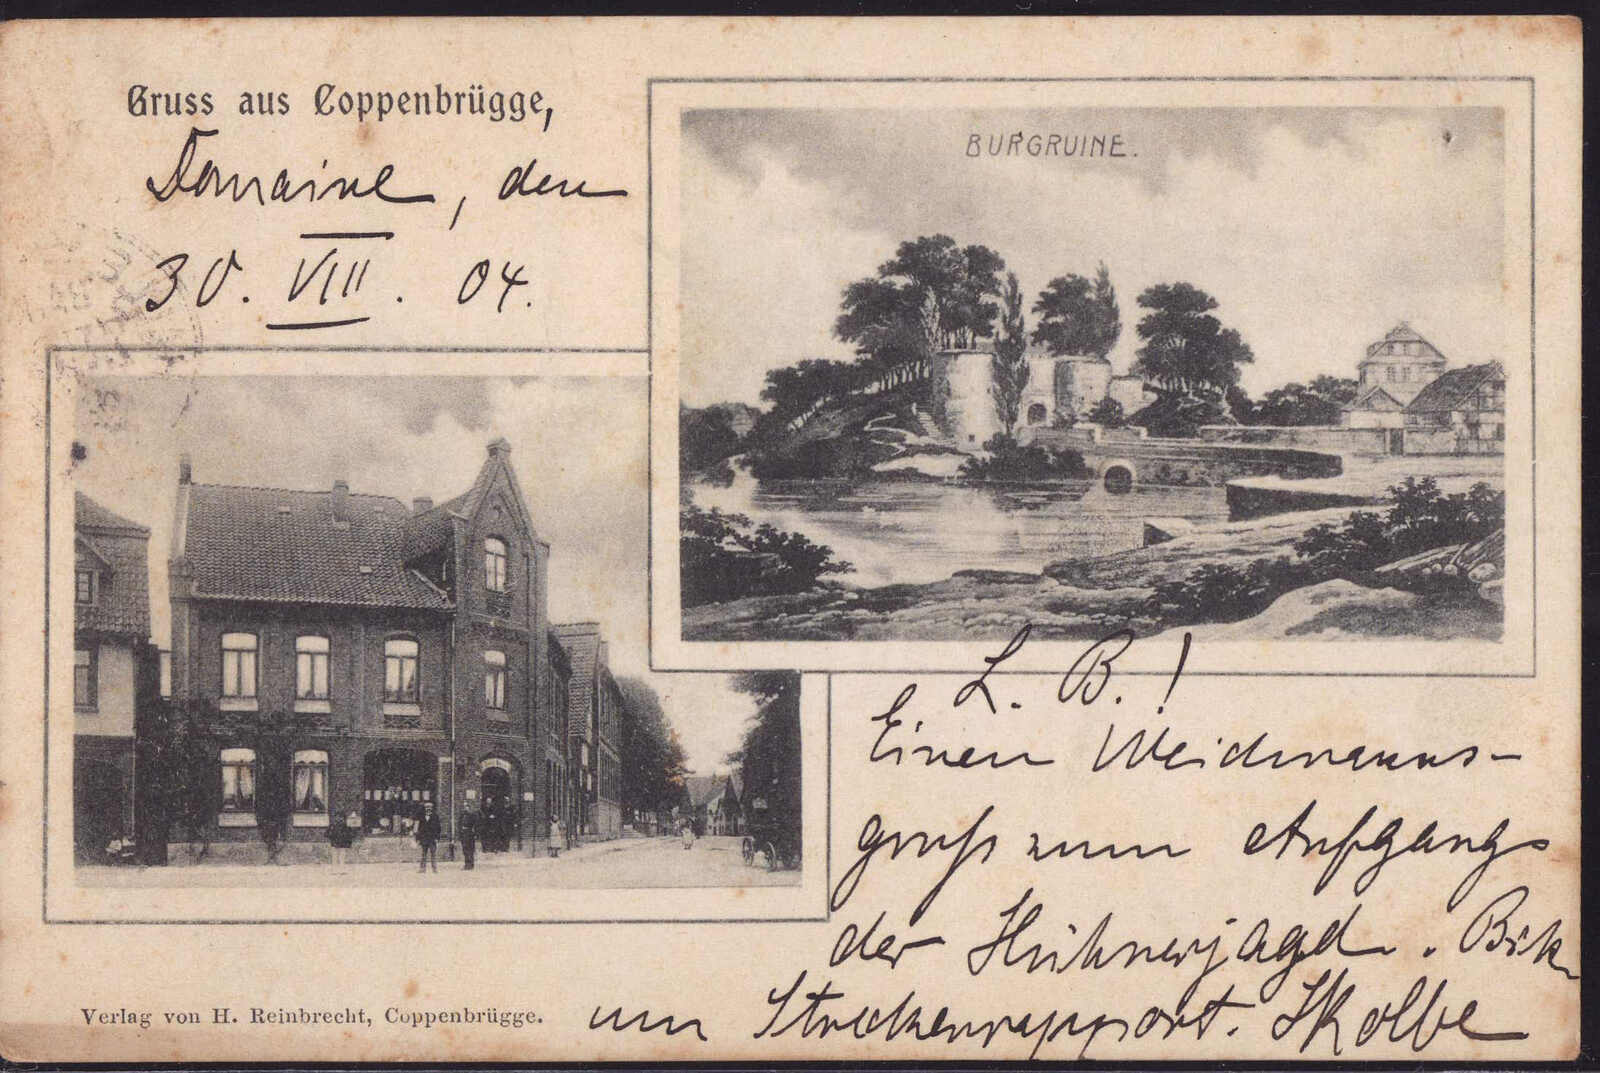 Gruss aus Coppenbrügge,
Domaine, den
30. VIII. 04.
BURGRUINE.
L. B.!
Einen Weidmanns-
gruß zum Aufgang
der Hühnerjagd.
um Streckenrapport.
Verlag von H. Reinbrecht, Coppenbrügge.